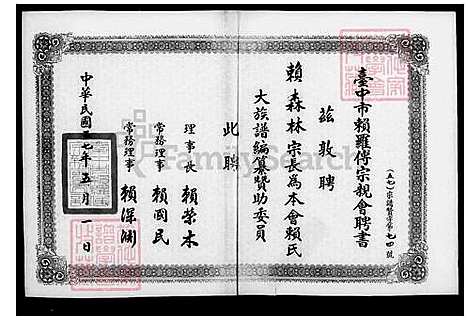 臺中市賴羅傅宗親會聘書
茲敦聘
賴森林宗長為本會賴氏
大族譜編纂贊助委員
此聘
理事長 賴榮木
常務理事 賴國民
常務理事 賴深淵
中華民國 七年五月一日
FamilySearch